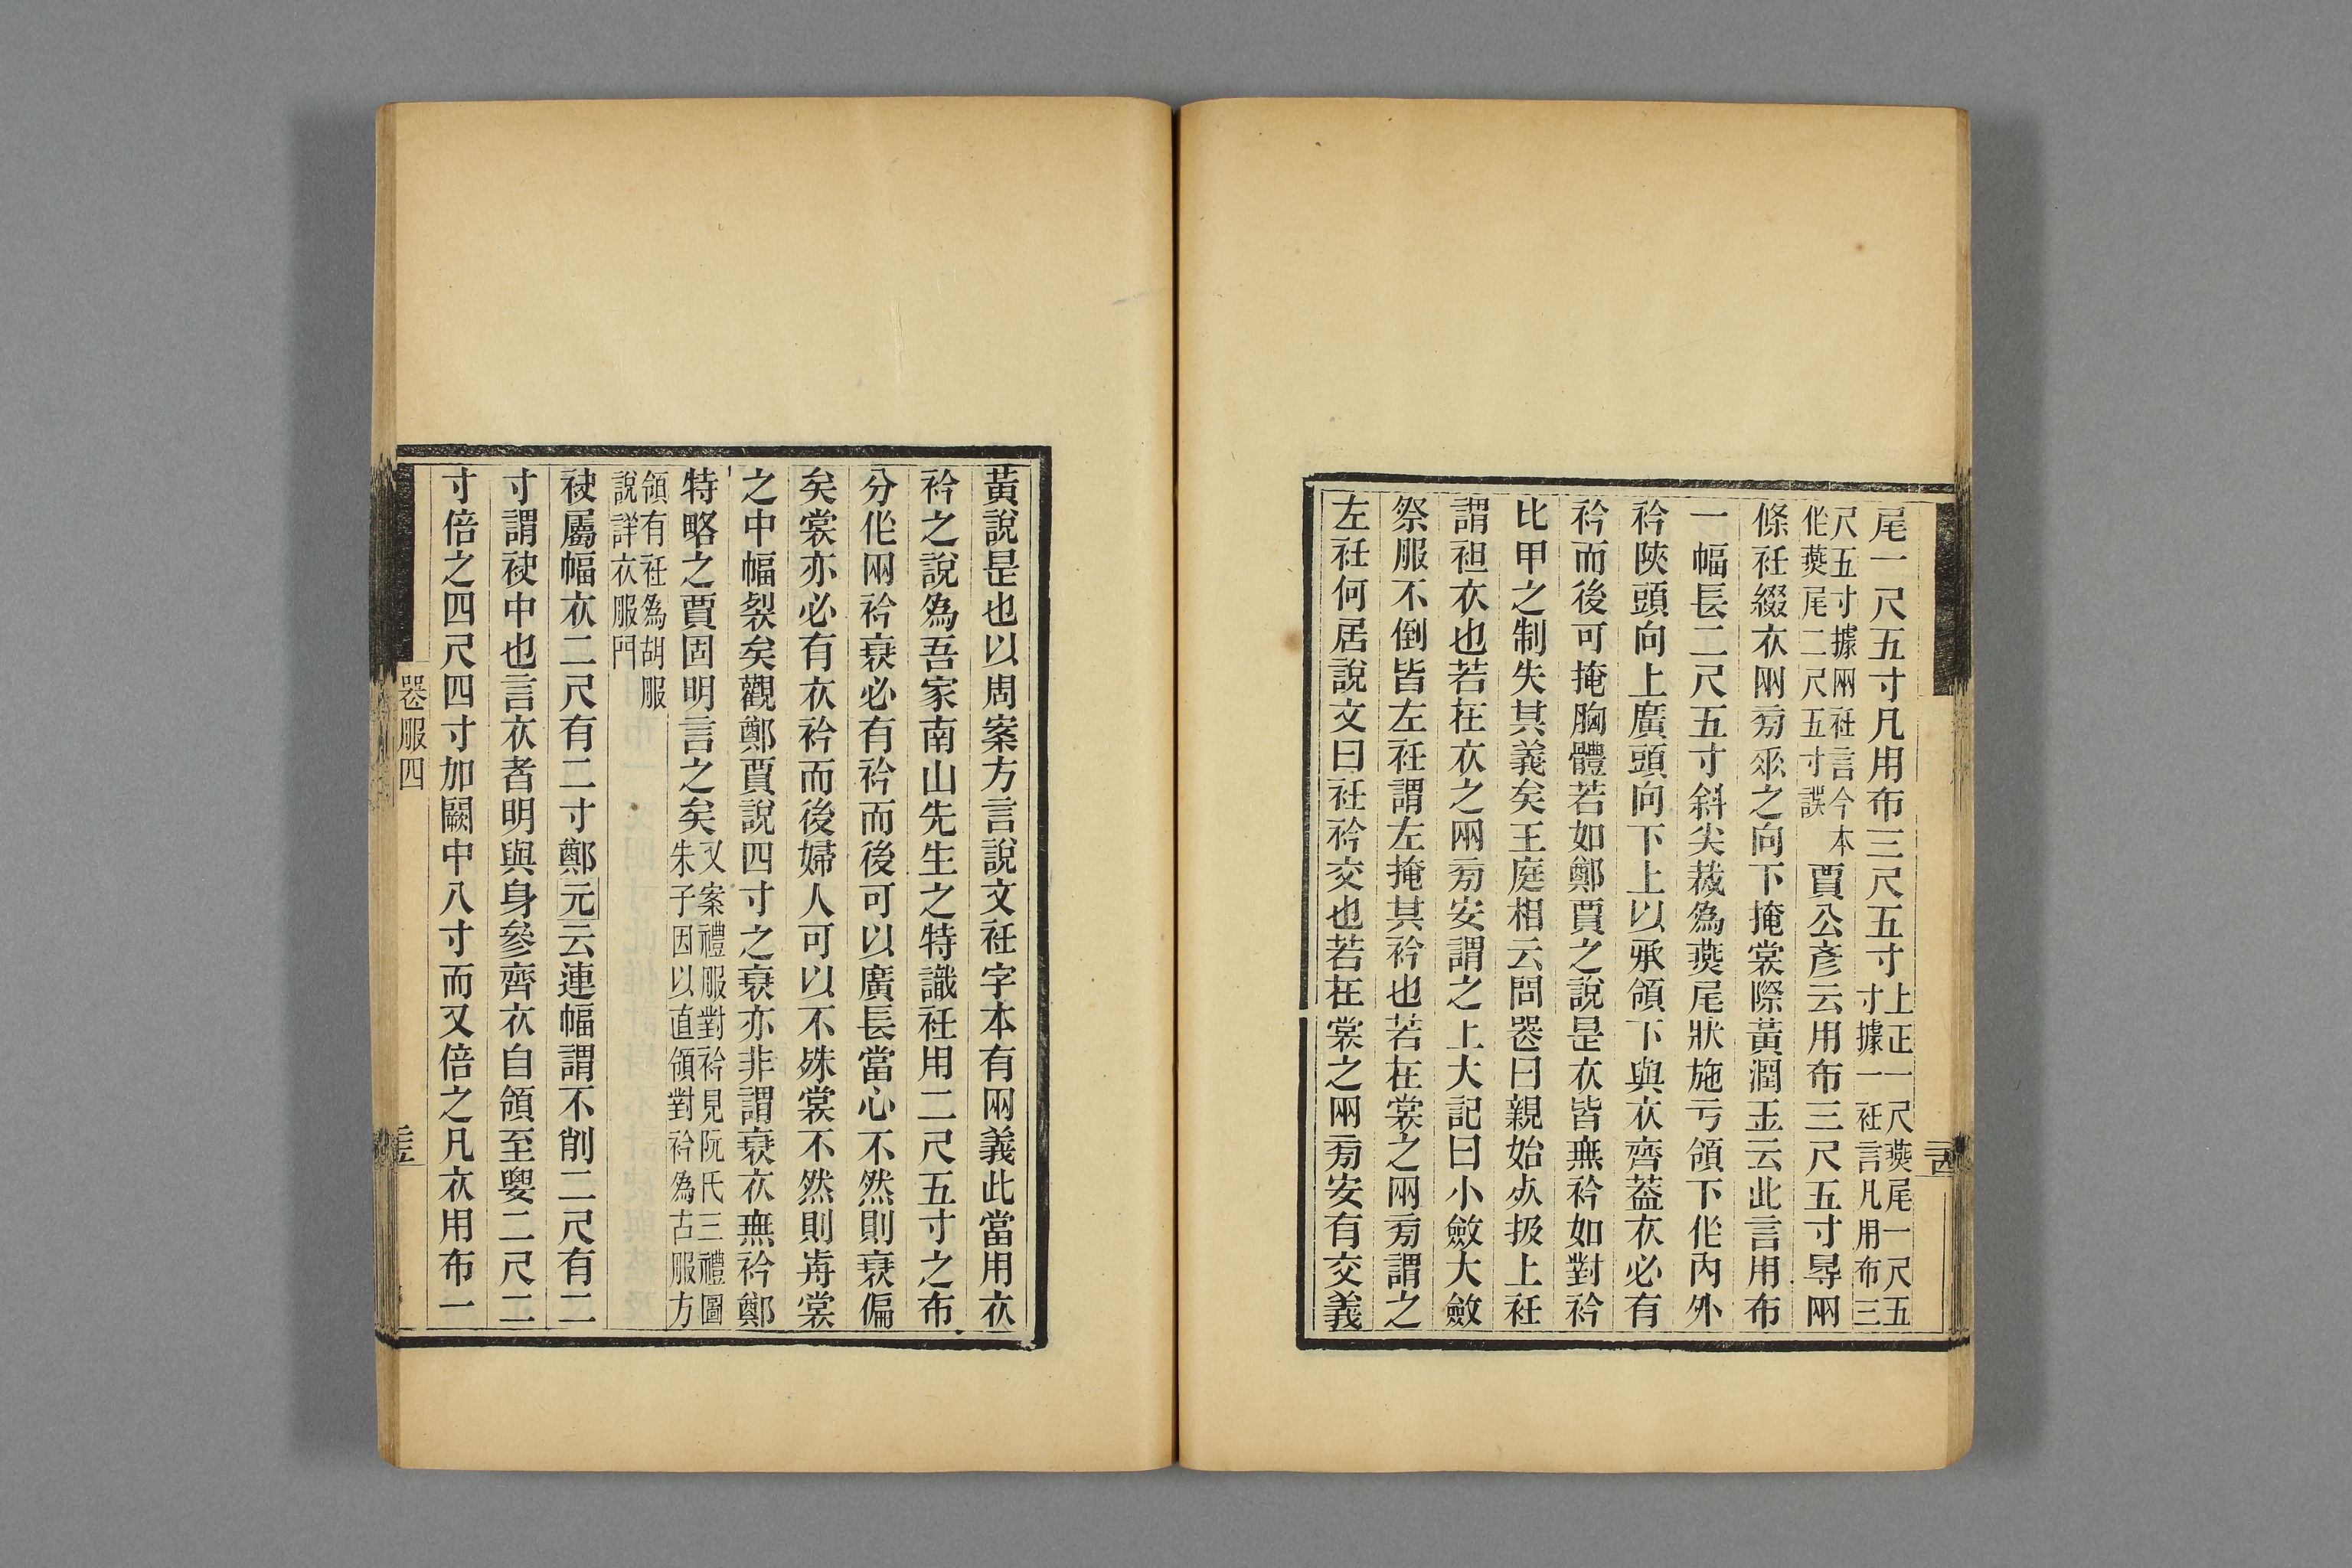 尾一尺五寸凡用布三尺五寸上正一尺燕尾一尺五寸據一衽言凡用布三
尺五寸據兩衽言今本作燕尾二尺五寸誤賈公彥云用布三尺五寸㝵兩
條衽綴衣兩㫄𠂹之向下掩裳際黃潤玉云此言用布
一幅長二尺五寸斜尖裁爲燕尾狀施亏領下作內外
衿陜頭向上廣頭向下上以承領下與衣齊蓋衣必有
衿而後可掩胸體若如鄭賈之說是衣皆無衿如對衿
比甲之制失其義矣王庭相云問喪曰親始𣦸扱上衽
謂袒衣也若在衣之兩㫄安謂之上大記曰小斂大斂
祭服不倒皆左衽謂左掩其衿也若在裳之兩㫄謂之
左衽何居說文曰衽衿交也若在裳之兩㫄安有交義
黃說是也以周案方言說文衽字本有兩義此當用衣
衿之說爲吾家南山先生之特識衽用二尺五寸之布
分作兩衿衰必有衿而後可以廣長當心不然則衰偏
矣裳亦必有衣衿而後婦人可以不殊裳不然則歬裳
之中幅裂矣觀鄭賈說四寸之衰亦非謂衰衣無衿鄭
特略之賈固明言之矣又案禮服對衿見阮氏三禮圖朱子因以直領對衿爲古服方
領有衽爲胡服說詳衣服門
袂屬幅衣二尺有二寸鄭元云連幅謂不削二尺有二
寸謂袂中也言衣者明與身參齊衣自領至要二尺二
寸倍之四尺四寸加闕中八寸而又倍之凡衣用布一
喪服四